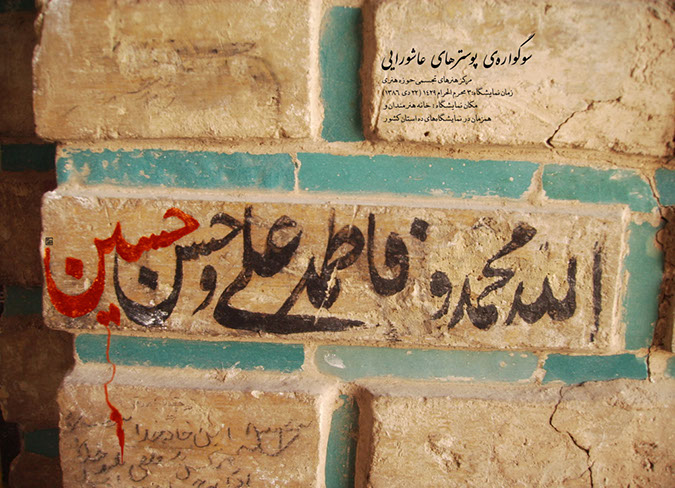 سوگواره‌ی پوسترهای عاشورایی
مرکز هنرهای تجسمی حوزه هنری
زمان نمایشگاه: ۳ محرم الحرام ۱۴۲۹ (۲۲ دی ۱۳۸۶)
مکان نمایشگاه: خانه هنرمندان و
همزمان در نمایشگاه‌های ده استان کشور
الله محمد و فاطمه علی و حسن حسین